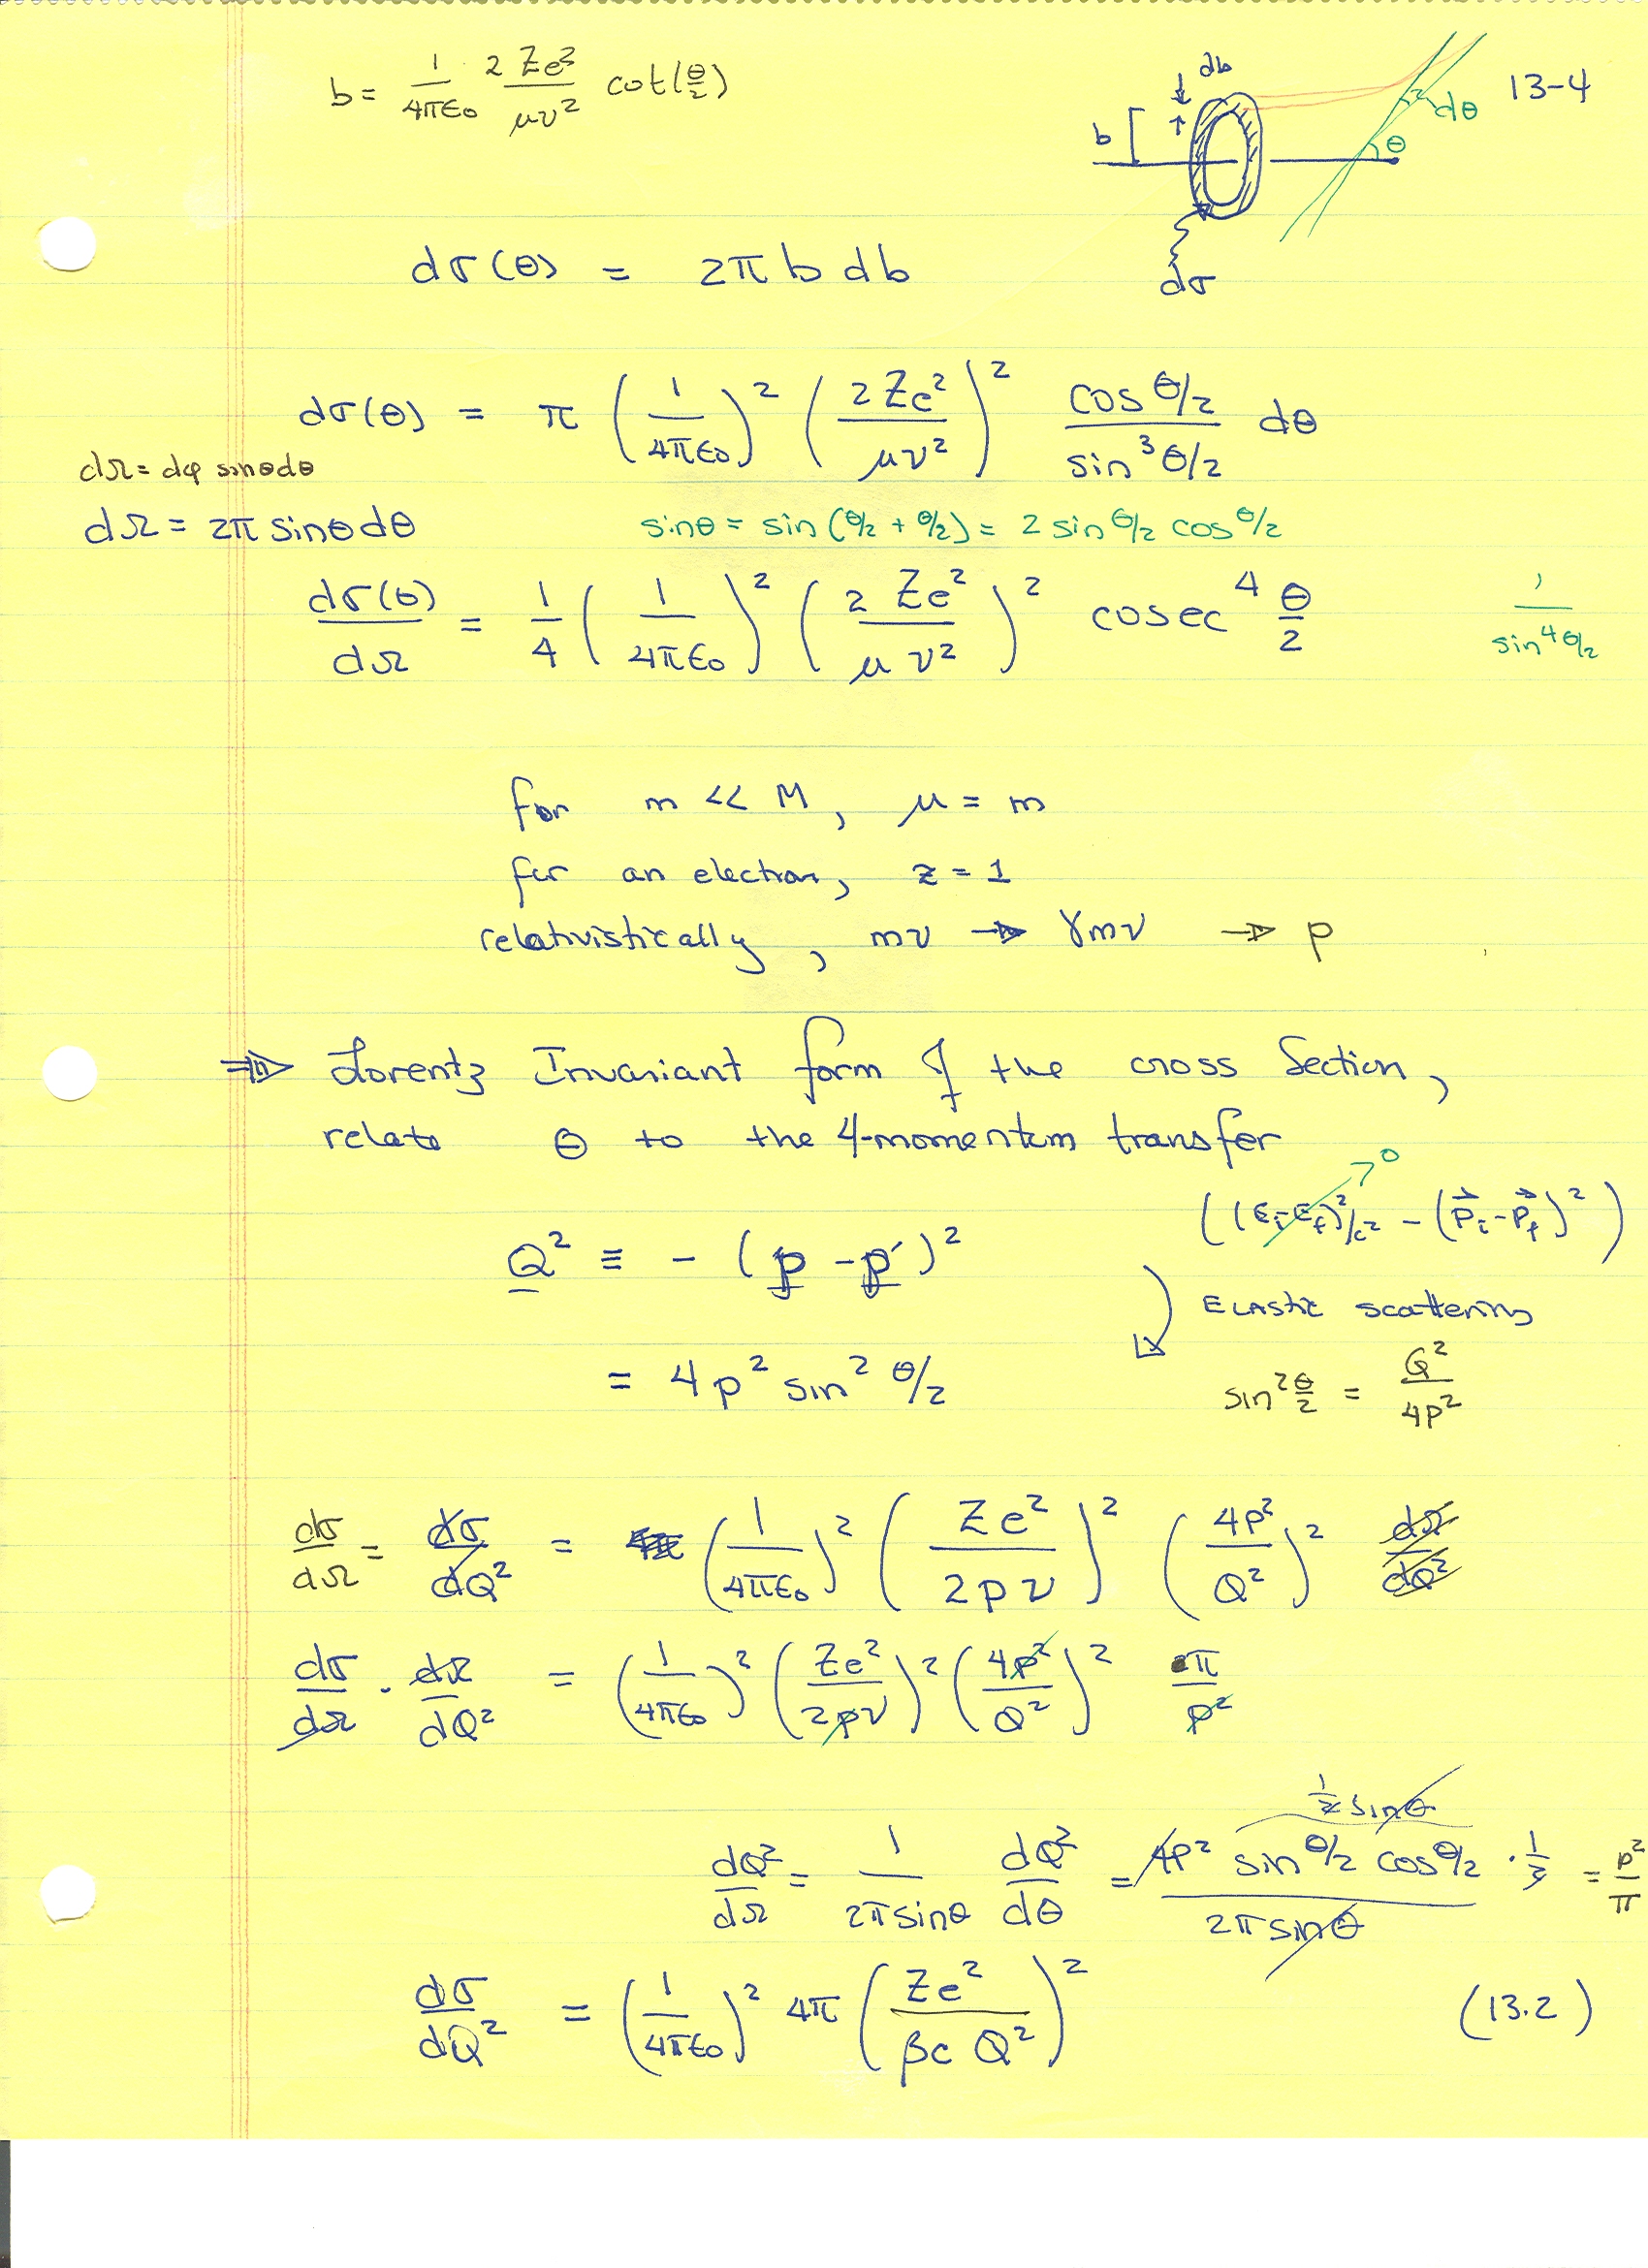 b = 1/4πε₀ · 2 Ze²/μv² cot(θ/2)
db
13-4
b
dθ
θ
dσ
dσ(θ) = 2π b db
dσ(θ) = π (1/4πε₀)² (2 Ze²/μv²)² cos θ/2 / sin³ θ/2 dθ
dΩ = dφ sinθdθ
dΩ = 2π sinθdθ
sinθ = sin(θ/2 + θ/2) = 2 sin θ/2 cos θ/2
dσ(θ)/dΩ = 1/4 (1/4πε₀)² (2 Ze²/μv²)² cosec⁴ θ/2
1/sin⁴θ/2
for m << M, μ = m
for an electron, z = 1
relativistically, mv → γmv → p
⇒ Lorentz Invariant form of the cross Section,
relate θ to the 4-momentum transfer
((Ei-Ef)²/c² - (p⃗i - p⃗f)²) → 0
Q² ≡ - (p - p')²
Elastic scattering
= 4p² sin² θ/2
sin² θ/2 = Q²/4p²
dσ/dΩ = dσ/dQ² = (1/4πε₀)² (Ze²/2pv)² (4p²/Q²)² dΩ/dQ²
dσ/dΩ · dΩ/dQ² = (1/4πε₀)² (Ze²/2pv)² (4p²/Q²)² π/p²
1/2 sinθ
dQ²/dΩ = 1/2πsinθ dQ²/dθ = 4p² sin θ/2 cos θ/2 / 2π sinθ = p²/π
dσ/dQ² = (1/4πε₀)² 4π (Ze²/βc Q²)²
(13.2)